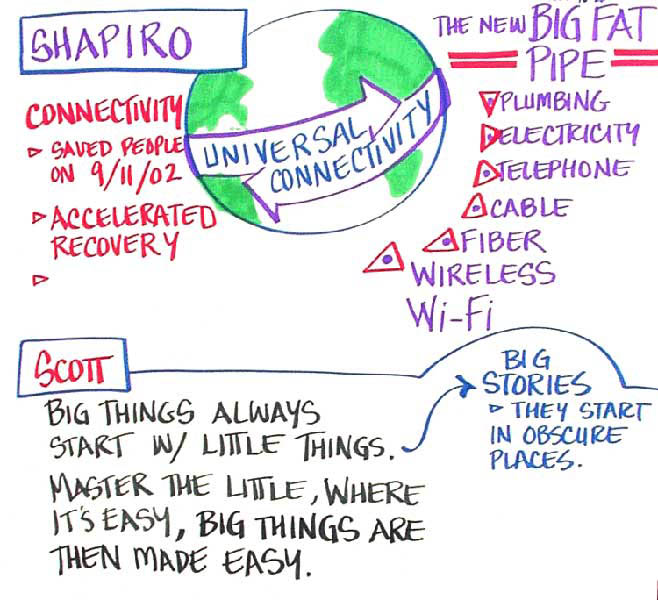 SHAPIRO
CONNECTIVITY
SAVED PEOPLE
ON 9/11/02
ACCELERATED
RECOVERY
UNIVERSAL
CONNECTIVITY
THE NEW BIG FAT
PIPE
PLUMBING
ELECTRICITY
TELEPHONE
CABLE
FIBER
WIRELESS
Wi-Fi
SCOTT
BIG THINGS ALWAYS
START W/ LITTLE THINGS.
MASTER THE LITTLE, WHERE
IT'S EASY, BIG THINGS ARE
THEN MADE EASY.
BIG
STORIES
THEY START
IN OBSCURE
PLACES.